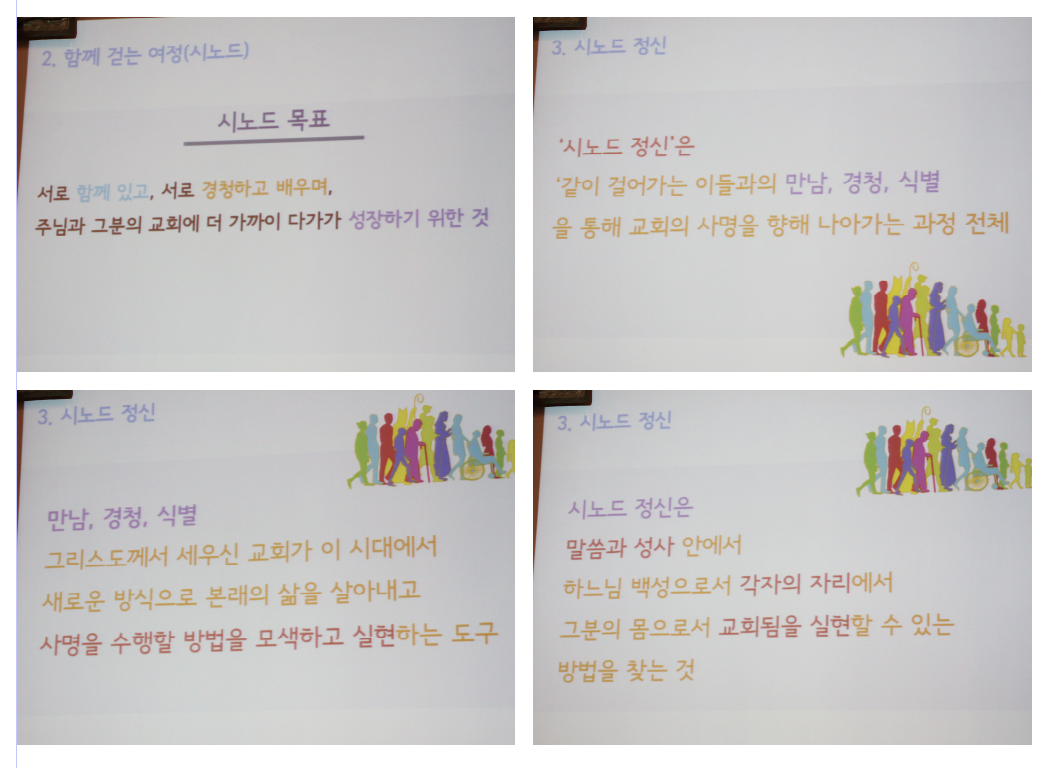 2. 함께 걷는 여정(시노드)
시노드 목표
서로 함께 있고, 서로 경청하고 배우며,
주님과 그분의 교회에 더 가까이 다가가 성장하기 위한 것
3. 시노드 정신
'시노드 정신'은
'같이 걸어가는 이들과의 만남, 경청, 식별
을 통해 교회의 사명을 향해 나아가는 과정 전체
3. 시노드 정신
만남, 경청, 식별
그리스도께서 세우신 교회가 이 시대에서
새로운 방식으로 본래의 삶을 살아내고
사명을 수행할 방법을 모색하고 실현하는 도구
3. 시노드 정신
시노드 정신은
말씀과 성사 안에서
하느님 백성으로서 각자의 자리에서
그분의 몸으로서 교회됨을 실현할 수 있는
방법을 찾는 것